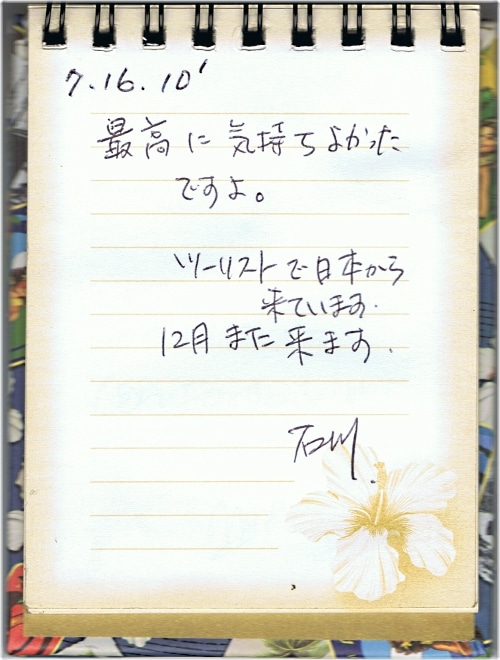 7.16.10'
最高に気持ちよかった
ですよ。
ツーリストで日本から
来ています.
12月また来ます.
石川